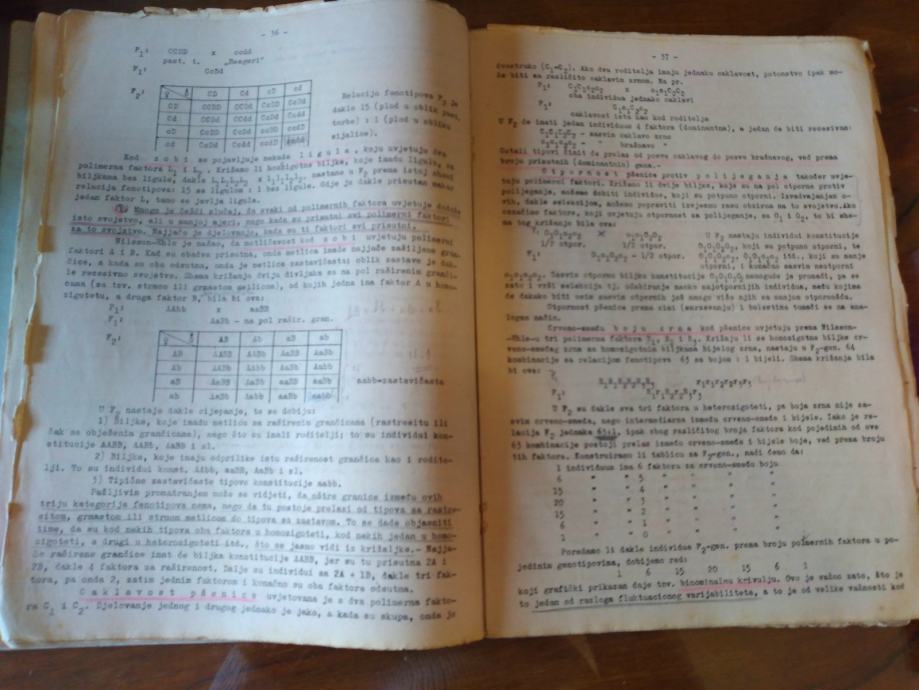 - 36 -
P₁: CCDD x ccdd
past. t. „Heegeri"
F₁: CcDd
F₂:
CD Cd cD cd
CD CCDD CCDd CcDD CcDd
Cd CCDd CCdd CcDd Ccdd
cD CcDD CcDd ccDD ccDd
cd CcDd Ccdd ccDd ccdd
Relacija fenotipova F₂ je
dakle 15 (plod u obliku past.
torbe) : 1 (plod u obliku
sijalice).
Kod zobi se pojavljuje nekada ligula, koju uvjetuju dva
polimerna faktora L₁ i L₂. Križamo li homozigotne biljke, koje imadu ligulu, sa
biljkama bez ligule, dakle
relacija fenotipova: 15 sa ligulom : 1 bez ligule. Gdje je dakle prisutan makar
jedan faktor L, tamo se javlja ligula.
Mnogo je češći slučaj, da svaki od polimernih faktora uvjetuje doduše
isto svojstvo, ali u manjoj mjeri, nego kada su prisutni svi polimerni faktori
za to svojstvo. Najjače je djelovanje, kada su ti faktori svi prisutni.
Nilsson-Ehle je našao, da metličavost kod zobi uvjetuju polimerni
faktori A i B. Kad su obadva prisutna, onda metlica imade najjače raširene gran-
čice, a kada su oba odsutna, onda je metlica zastavičasta; oblik zastave je dak-
le recesivno svojstvo. Shema križanja dviju divljaka sa na pol raširenim granči-
cama (za tzv. strmom ili grmastom metlicom), od kojih jedna ima faktor A u homo-
zigotetu, a druga faktor B, bila bi ova:
P₁: AAbb x aaBB
F₁: AaBb - na pol rašir. gran.
F₂:
AB Ab aB ab
AB AABB AABb AaBB AaBb
Ab AABb AAbb AaBb Aabb
aB AaBB AaBb aaBB aaBb
ab AaBb Aabb aaBb aabb
aabb=zastavičasta
U F₂ nastaje dakle cijepanje, te se dobiju:
1) Biljke, koje imadu metlicu sa raširenim grančicama (rastresitu ili
čak sa obješenim grančicama), nego što su imali roditelji; to su individui kon-
stitucije AABB, AABb, AaBB i sl.
2) Biljke, koje imaju otprilike istu raširenost grančica kao i rodite-
lji. To su individui konst. AAbb, aaBB, AaBb i sl.
3) Tipično zastavičaste tipove konstitucije aabb.
Pažljivim promatranjem može se vidjeti, da oštre granice između ovih
triju kategorija fenotipova nema, nego da tu postoje prelazi od tipova sa rastre-
sitom, grmastom ili strmom metlicom do tipova sa zastavom. To se dade objasniti
time, da su kod nekih tipova oba faktora u homozigoteti, kod nekih jedan u homo-
zigoteti, a drugi u heterozigoteti itd., što se jasno vidi iz križaljke.- Najja-
če raširene grančice imat će biljka konstitucije AABB, jer su tu prisutna 2A i
2B, dakle 4 faktora za raširenost. Dalje su individui sa 2A + 1B, dakle tri fak-
tora, pa onda 2, zatim jednim faktorom i konačno su oba faktora odsutna.
Caklavost pšenice uvjetovana je s dva polimerna fakto-
ra C₁ i C₂. Djelovanje jednog i drugog jednako je jako, a kada su skupa, onda je
- 37 -
dvostruko (C₁-C₂). Ako dva roditelja imaju jednaku caklavost, potomstvo ipak mo-
že biti sa različito caklavim zrnom. Na pr.
P₁: C₁C₁c₂c₂ x c₁c₁C₂C₂
oba individua jednako caklavi
F₁: C₁c₁C₂c₂
caklavost ista kao kod roditelja
U F₂ će imati jedan individuum 4 faktora (dominantna), a jedan će biti recesivan:
C₁C₁C₂C₂ - sasvim caklavo zrno
c₁c₁c₂c₂ - " brašnavo "
Ostali tipovi činit će prelaz od posve caklavog do posve brašnavog, već prema
broju prisutnih (dominantnih) gena.-
Otpornost pšenice protiv polijeganja također uvje-
tuju polimerni faktori. Križamo li dvije biljke, koje su na pol otporne protiv
polijeganja, možemo dobiti individue, koji su potpuno otporni. Izdvajanjem o-
vih, dakle selekcijom, možemo popraviti izvjesnu rasu obzirom na to svojstvo. Ako
označimo faktore, koji uvjetuju otpornost za polijeganje, sa O₁ i O₂, to bi she-
ma tog križanja bila ova:
P₁ O₁O₁o₂o₂ x o₁o₁O₂O₂
1/2 otpor. 1/2 otpor.
F₁: O₁o₁O₂o₂ - 1/2 otpor.
U F₂ nastaju individui konstitucije
O₁O₁O₂O₂, koji su potpuno otporni, te
itd., koji su manje
otporni, i konačno sasvim neotporni
o₁o₁o₂o₂. Sasvim otporne biljke konstitucije O₁O₁O₂O₂ nemoguće je pronaći, pa se
zato i vrši selekcija tj. odabiranje makar najotpornijih individua, među kojima
će dakako biti osim sasvim otpornih još mnogo više njih sa manjom otpornošću.
Otpornost pšenice prema zimi (smrzavanju) i bolestima tumači se na ana-
logan način.
Crveno-smeđu boju zrna kod pšenice uvjetuju prema Nilsson-
-Ehle-u tri polimerna faktora R₁, R₂ i R₃. Križaju li se homozigotne biljke cr-
veno-smeđeg zrna sa homozigotnim biljkama bijelog zrna, nastaju u F₂-gen. 64
kombinacije sa relacijom fenotipova 63 sa bojom : 1 bijeli. Shema križanja bila
bi ova:
P₁ R₁R₁R₂R₂R₃R₃ r₁r₁r₂r₂r₃r₃
F₁ R₁r₁R₂r₂R₃r₃
U F₁ su dakle sva tri faktora u heterozigoteti, pa boja zrna nije sa-
svim crveno-smeđa, nego intermedierna između crveno-smeđe i bijele. Iako je re-
lacija F₂ jednaka 63:1, ipak zbog različitog broja faktora kod pojedinih od ove
63 kombinacije postoji prelaz između crveno-smeđe i bijele boje, već prema broju
tih faktora. Konstruiramo li tablicu za F₂-gen., naći ćemo da:
1 individuum ima 6 faktora za crveno-smeđu boju
6 " " 5 " " " "
15 " " 4 " " " "
20 " " 3 " " " "
15 " " 2 " " " "
6 " " 1 " " " "
1 " " 0 " " " "
Poredamo li dakle individue F₂-gen. prema broju polimernih faktora u po-
jedinim genotipovima, dobijemo red:
1 6 15 20 15 6 1
koji grafički prikazan daje tzv. binominalnu krivulju. Ovo je važno zato, što je
to jedan od razloga fluktuacionog varijabiliteta, a to je od velike važnosti kod